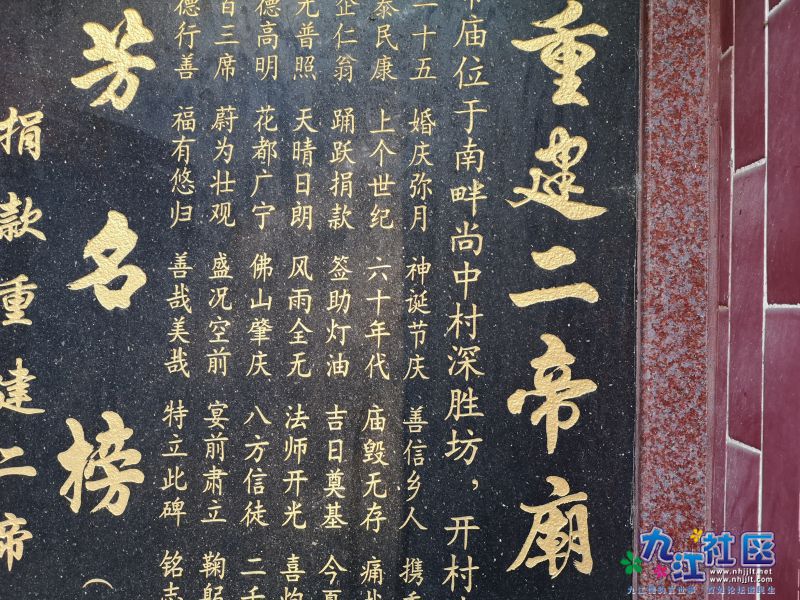 重建二帝廟
帝庙位于南畔尚中村深胜坊，开村
二十五 婚庆弥月 神诞节庆 善信乡人 携
泰民康 上个世纪 六十年代 庙毁无存 痛
企仁翁 踊跃捐款 签助灯油 吉日奠基 今
光普照 天晴日朗 风雨全无 法师开光 喜
德高明 花都广宁 佛山肇庆 八方信徒 二千
百三席 蔚为壮观 盛况空前 宴前肃立 鞠躬
德行善 福有悠归 善哉美哉 特立此碑 铭志
芳名榜（
捐款重建二帝
九江社区
www.nhjjlt.net
www.nhjjlt.com